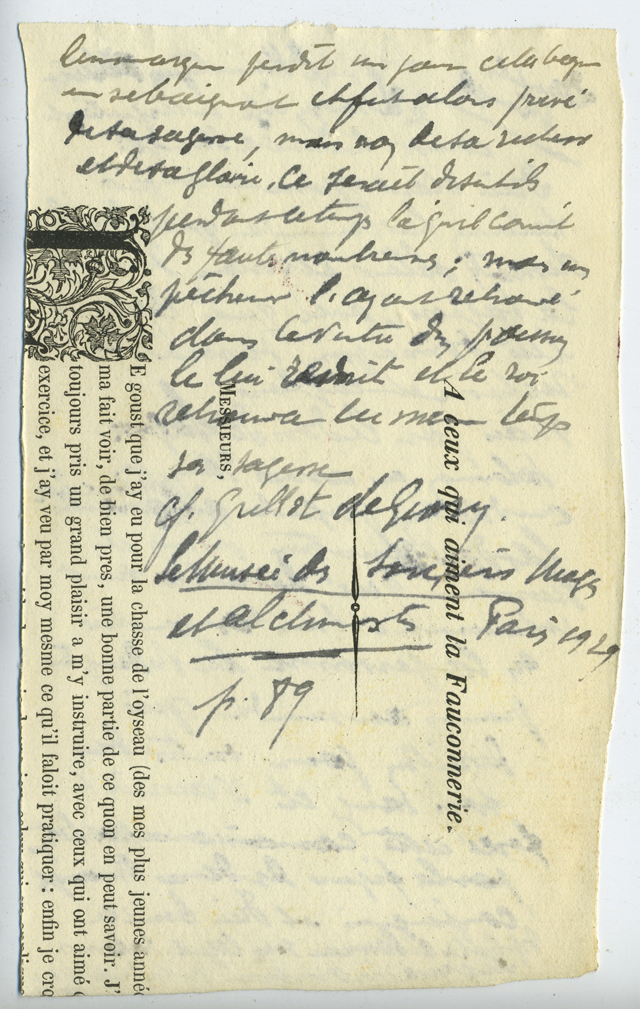 perdit un jour cette bague
en se baignant et fut alors privé
de sa sagesse, mais non de sa richesse
et de sa gloire. Ce serait disent ils
pendant ce temps là qu'il commit
ses fautes nombreuses ; mais un
pêcheur l'ayant retrouvé
dans le ventre d'un poisson
le lui rendit et le roi
retrouva en même temps
sa sagesse
cf. Grillot de Givry.
Le Musée des Sorciers Mages
et alchimistes Paris 1929
p. 89
A ceux qui aiment la Fauconnerie.
Messieurs,
E goust que j'ay eu pour la chasse de l'oyseau (des mes plus jeunes anné
ma fait voir, de bien pres, une bonne partie de ce quon en peut savoir. J'
toujours pris un grand plaisir a m'y instruire, avec ceux qui ont aimé c
exercice, et j'ay veu par moy mesme ce qu'il faloit pratiquer : enfin je cro